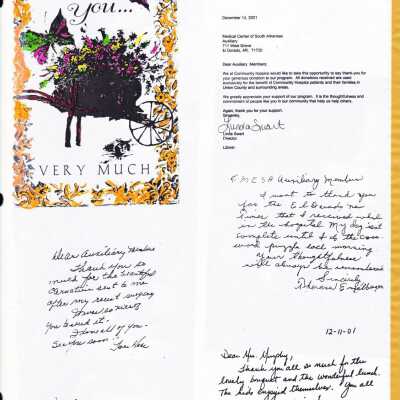 You...
VERY MUCH
Dear Auxiliary Members
Thank you so
much for the beautiful
Carnation sent to me
after my recent surgery
You saved it.
I love all of you.
See you soon. Love
December 14, 2001
Medical Center of South Arkansas
Auxiliary
711 West Grove
El Dorado, AR. 71730
Dear Auxiliary Members:
We at Community Hospice would like to take this opportunity to say thank you for
your generous donation to our program. All donations received are used
exclusively for the benefit of Community Hospice patients and their families in
Union County and surrounding areas.
We greatly appreciate your support of our program. It is the thoughtfulness and
commitment of people like you in our community that help us help others.
Again, thank you for your support.
Sincerely,
Linda Swart
Linda Swart
Director
LS/swr
Auxiliary Member
I want to thank you
for the El Dorado news
times that I received while
in the hospital My day isn't
complete until I do the cross
word puzzle each morning
Your thoughtfulness
will always be remembered
Sincerely
12-11-01
Dear Mrs. Murphy,
Thank you all so much for the
lovely bouquet and the wonderful lunch.
The kids enjoyed themselves. You all